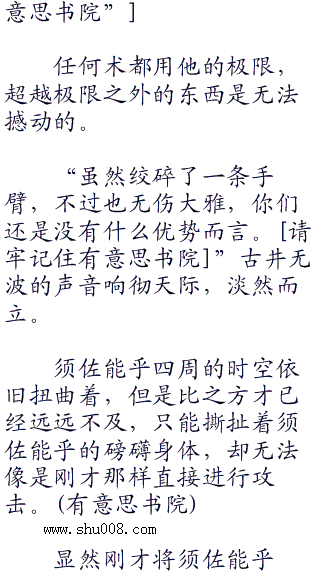 意思书院”]
任何术都用他的极限，
超越极限之外的东西是无法
撼动的。
“虽然绞碎了一条手
臂，不过也无伤大雅，你们
还是没有什么优势而言。[请
牢记住有意思书院]”古井无
波的声音响彻天际，淡然而
立。
须佐能乎四周的时空依
旧扭曲着，但是比之方才已
经远远不及，只能撕扯着须
佐能乎的磅礴身体，却无法
像是刚才那样直接进行攻
击。(有意思书院)
www.shu008.com
显然刚才将须佐能乎